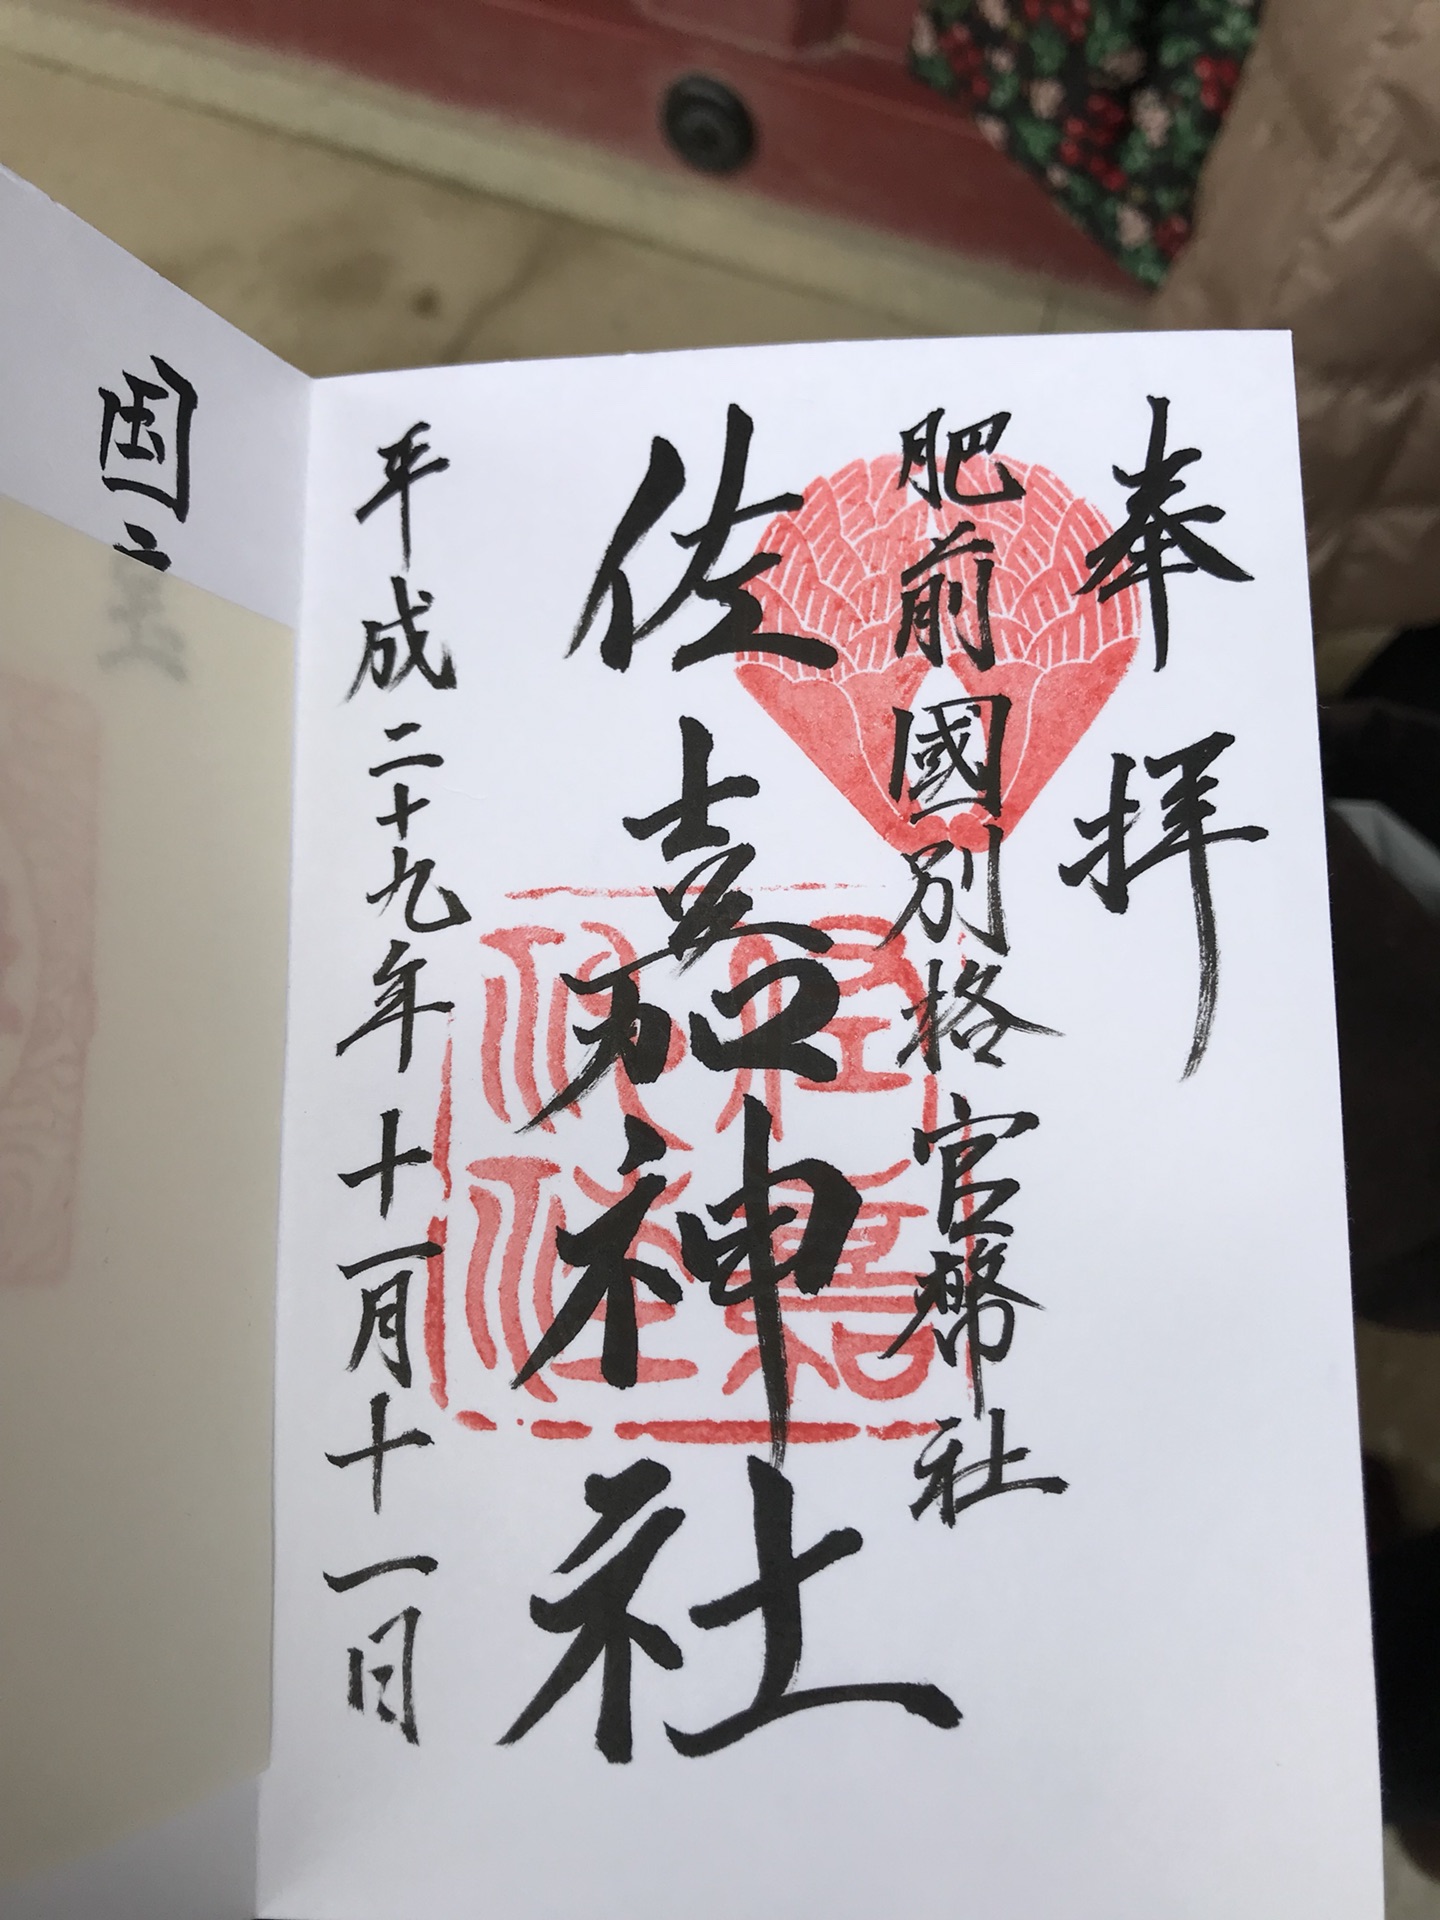 奉拝
肥前國別格官幣社
佐嘉神社
平成二十九年十一月十一日